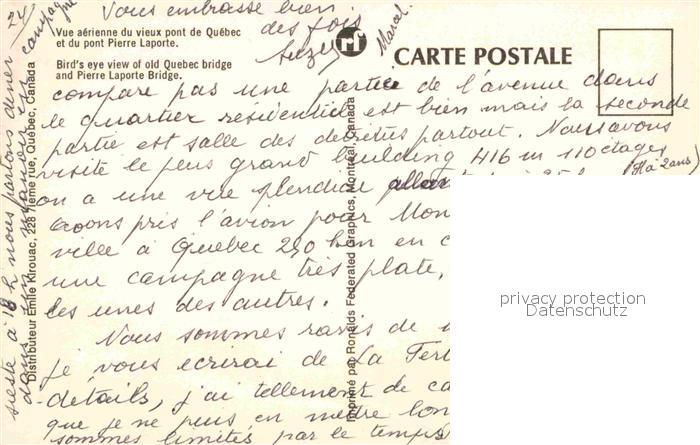 Vous embrasse bien
des fois
Suzy
Marcel
Vue aérienne du vieux pont de Québec
et du pont Pierre Laporte.
Bird's eye view of old Quebec bridge
and Pierre Laporte Bridge.
rf
CARTE POSTALE
compare pas une partie de l'avenue dans
le quartier résidentiel est bien mais la seconde
partie est salle des detritus partout. Nous avons
visité le plus grand building 416 m 110 étages
(Il a 2 ans)
on a une vue splendide
avons pris l'avion pour Mon
ville à Quebec 250 km en c
une campagne très plate,
les unes des autres.
Nous sommes ravis de
Je vous ecrirai de La Fert
détails, j'ai tellement de ca
que je ne peus en mettre lon
sommes limités par le temps
sieste à 16 h nous partons diner
dans un manoir
campagne
Distributeur Emile Kirouac, 228 7ieme rue, Québec, Canada
Imprimé par Ronalds Federated Graphics, Montréal, Canada
privacy protection
Datenschutz